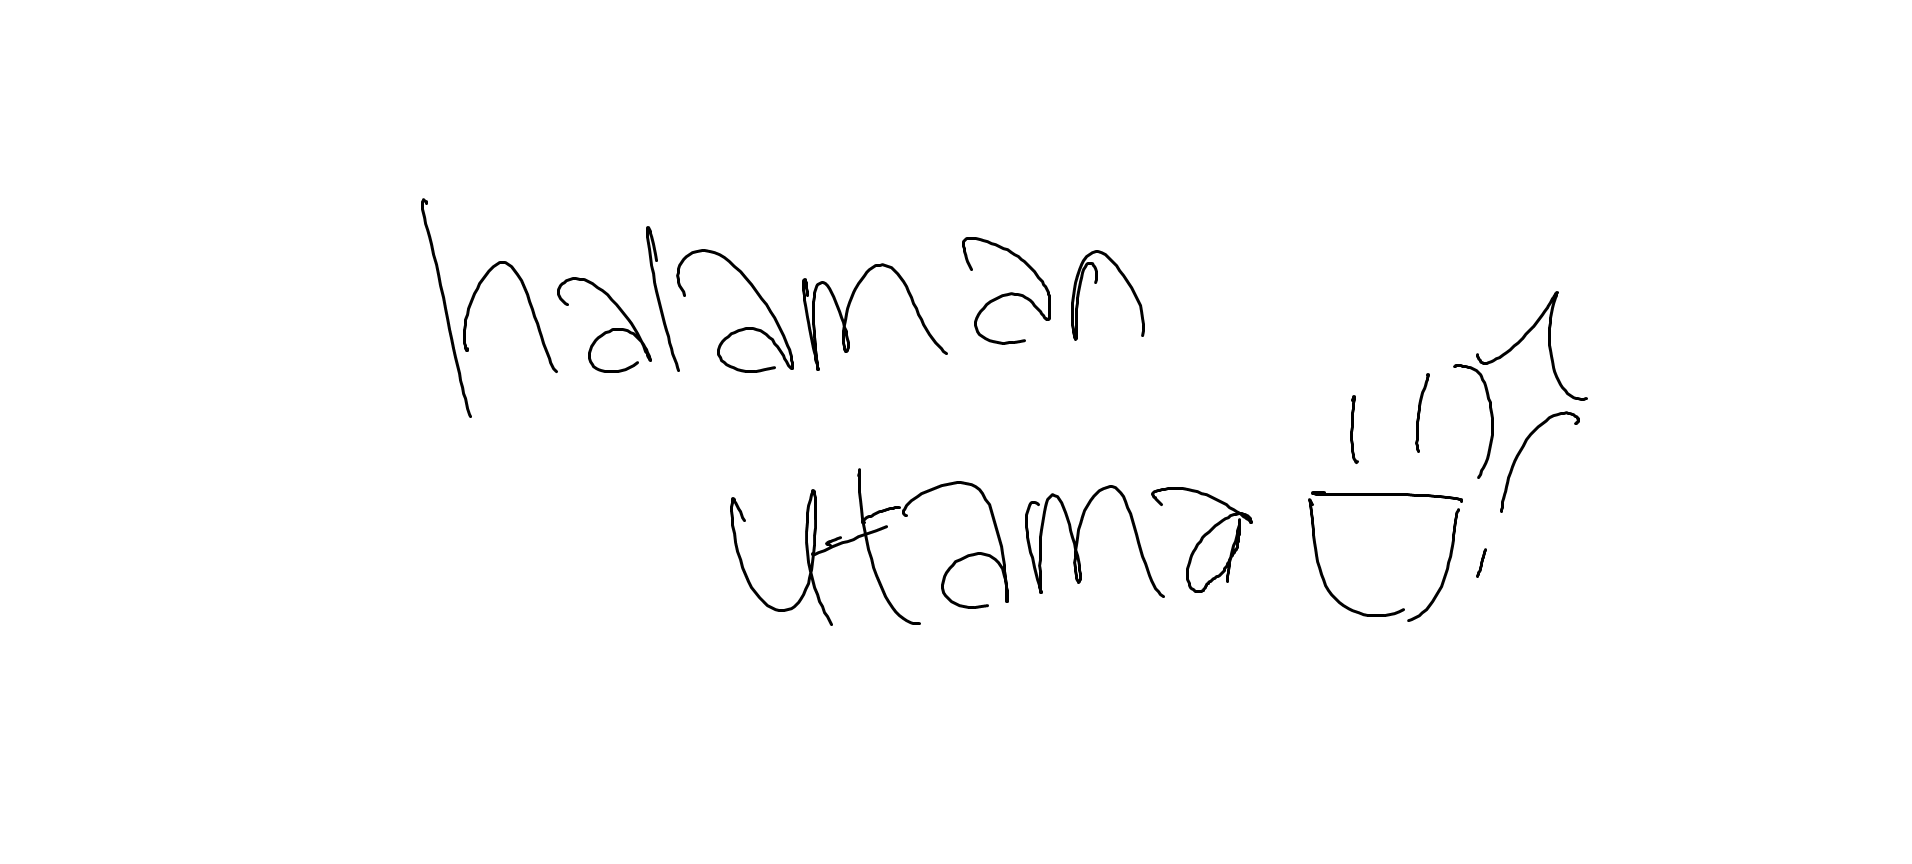 halaman
utama